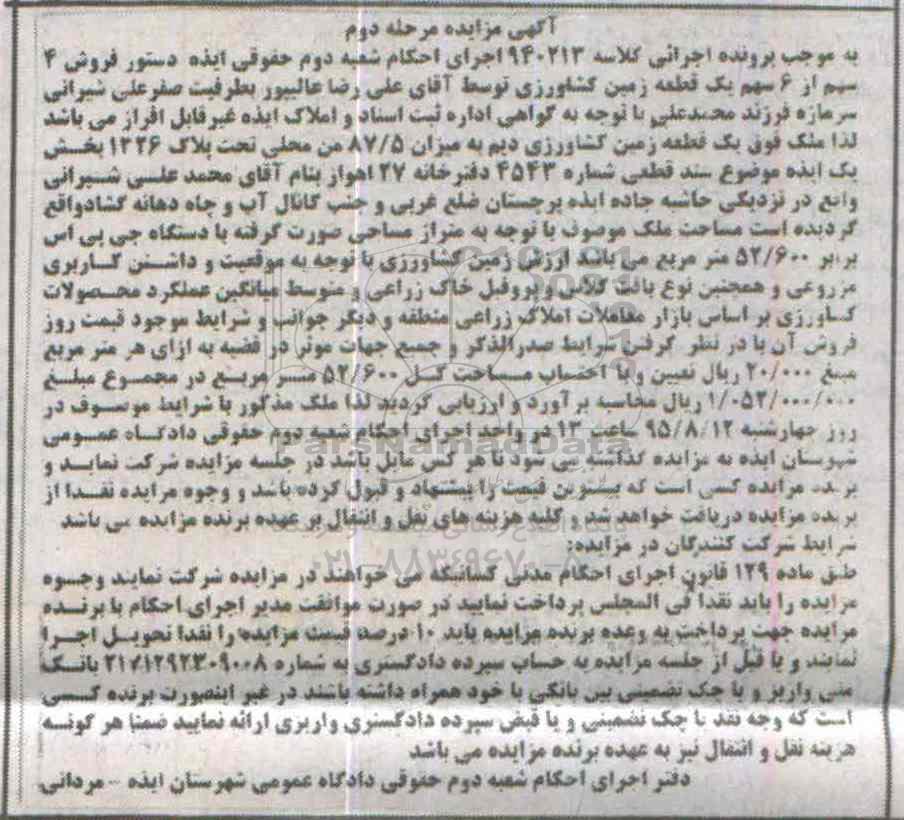 آگهی مزایده مرحله دوم
به موجب پرونده اجرائی کلاسه ۹۴۰۲۱۳ اجرای احکام شعبه دوم حقوقی ایذه دستور فروش ۴
سهم از ۶ سهم یک قطعه زمین کشاورزی توسط آقای علی رضا عالیپور بطرفیت صفرعلی شیرانی
سرمازه فرزند محمدعلی با توجه به گواهی اداره ثبت اسناد و املاک ایذه غیرقابل افراز می باشد
لذا ملک فوق یک قطعه زمین کشاورزی دیم به میزان ۸۷/۵ من محلی تحت پلاک ۱۳۳۶ بخش
یک ایذه موضوع سند قطعی شماره ۴۵۴۳ دفترخانه ۲۷ اهواز بنام آقای محمد علی شیرانی
واقع در نزدیکی حاشیه جاده ایذه پرچستان ضلع غربی و جنب کانال آب و چاه دهانه گشادواقع
گردیده است مساحت ملک موصوف با توجه به متراژ مساحی صورت گرفته با دستگاه جی پی اس
برابر ۵۲/۶۰۰ متر مربع می باشد ارزش زمین کشاورزی با توجه به موقعیت و داشتن کاربری
مزروعی و همچنین نوع بافت کلاس و پروفیل خاک زراعی و متوسط میانگین عملکرد محصولات
کشاورزی بر اساس بازار معاملات املاک زراعی منطقه و دیگر جوانب و شرایط موجود قیمت روز
فروش آن با در نظر گرفتن شرایط صدرالذکر و جمیع جهات موثر در قضیه به ازای هر متر مربع
مبلغ ۲۰/۰۰۰ ریال تعیین و با احتساب مساحت کل ۵۲/۶۰۰ متر مربع در مجموع مبلغ
۱/۰۵۲/۰۰۰/۰۰۰ ریال محاسبه برآورد و ارزیابی گردید لذا ملک مذکور با شرایط موصوف در
روز چهارشنبه ۹۵/۸/۱۲ ساعت ۱۳ در واحد اجرای احکام شعبه دوم حقوقی دادگاه عمومی
شهرستان ایذه به مزایده گذاشته می شود تا هر کس مایل باشد در جلسه مزایده شرکت نماید و
برنده مزایده کسی است که بیشترین قیمت را پیشنهاد و قبول کرده باشد و وجوه مزایده نقدا از
برنده مزایده دریافت خواهد شد و کلیه هزینه های نقل و انتقال بر عهده برنده مزایده می باشد
شرایط شرکت کنندگان در مزایده:
طبق ماده ۱۲۹ قانون اجرای احکام مدنی کسانیکه می خواهند در مزایده شرکت نمایند وجوه
مزایده را باید نقدا فی المجلس پرداخت نمایید در صورت موافقت مدیر اجرای احکام با برنده
مزایده جهت پرداخت به وعده برنده مزایده باید ۱۰ درصد قیمت مزایده را نقدا تحویل اجرا
نمایند و یا قبل از جلسه مزایده به حساب سپرده دادگستری به شماره ۲۱۷۱۲۹۲۳۰۹۰۰۸ بانک
ملی واریز و یا چک تضمینی بین بانکی با خود همراه داشته باشند در غیر اینصورت برنده کسی
است که وجه نقد یا چک تضمینی و یا قبض سپرده دادگستری واریزی ارائه نمایید ضمنا هر گونه
هزینه نقل و انتقال نیز به عهده برنده مزایده می باشد
دفتر اجرای احکام شعبه دوم حقوقی دادگاه عمومی شهرستان ایذه - مردانی
ParsNamadData
۰۲۱-۸۸۳۴۹۶۷۰